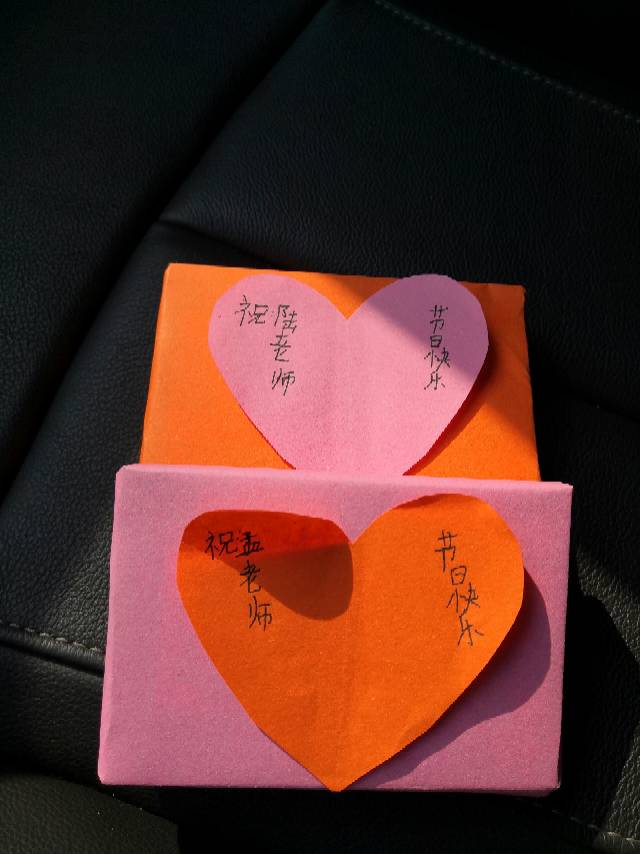 祝陆老师
节日快乐
祝孟老师
节日快乐